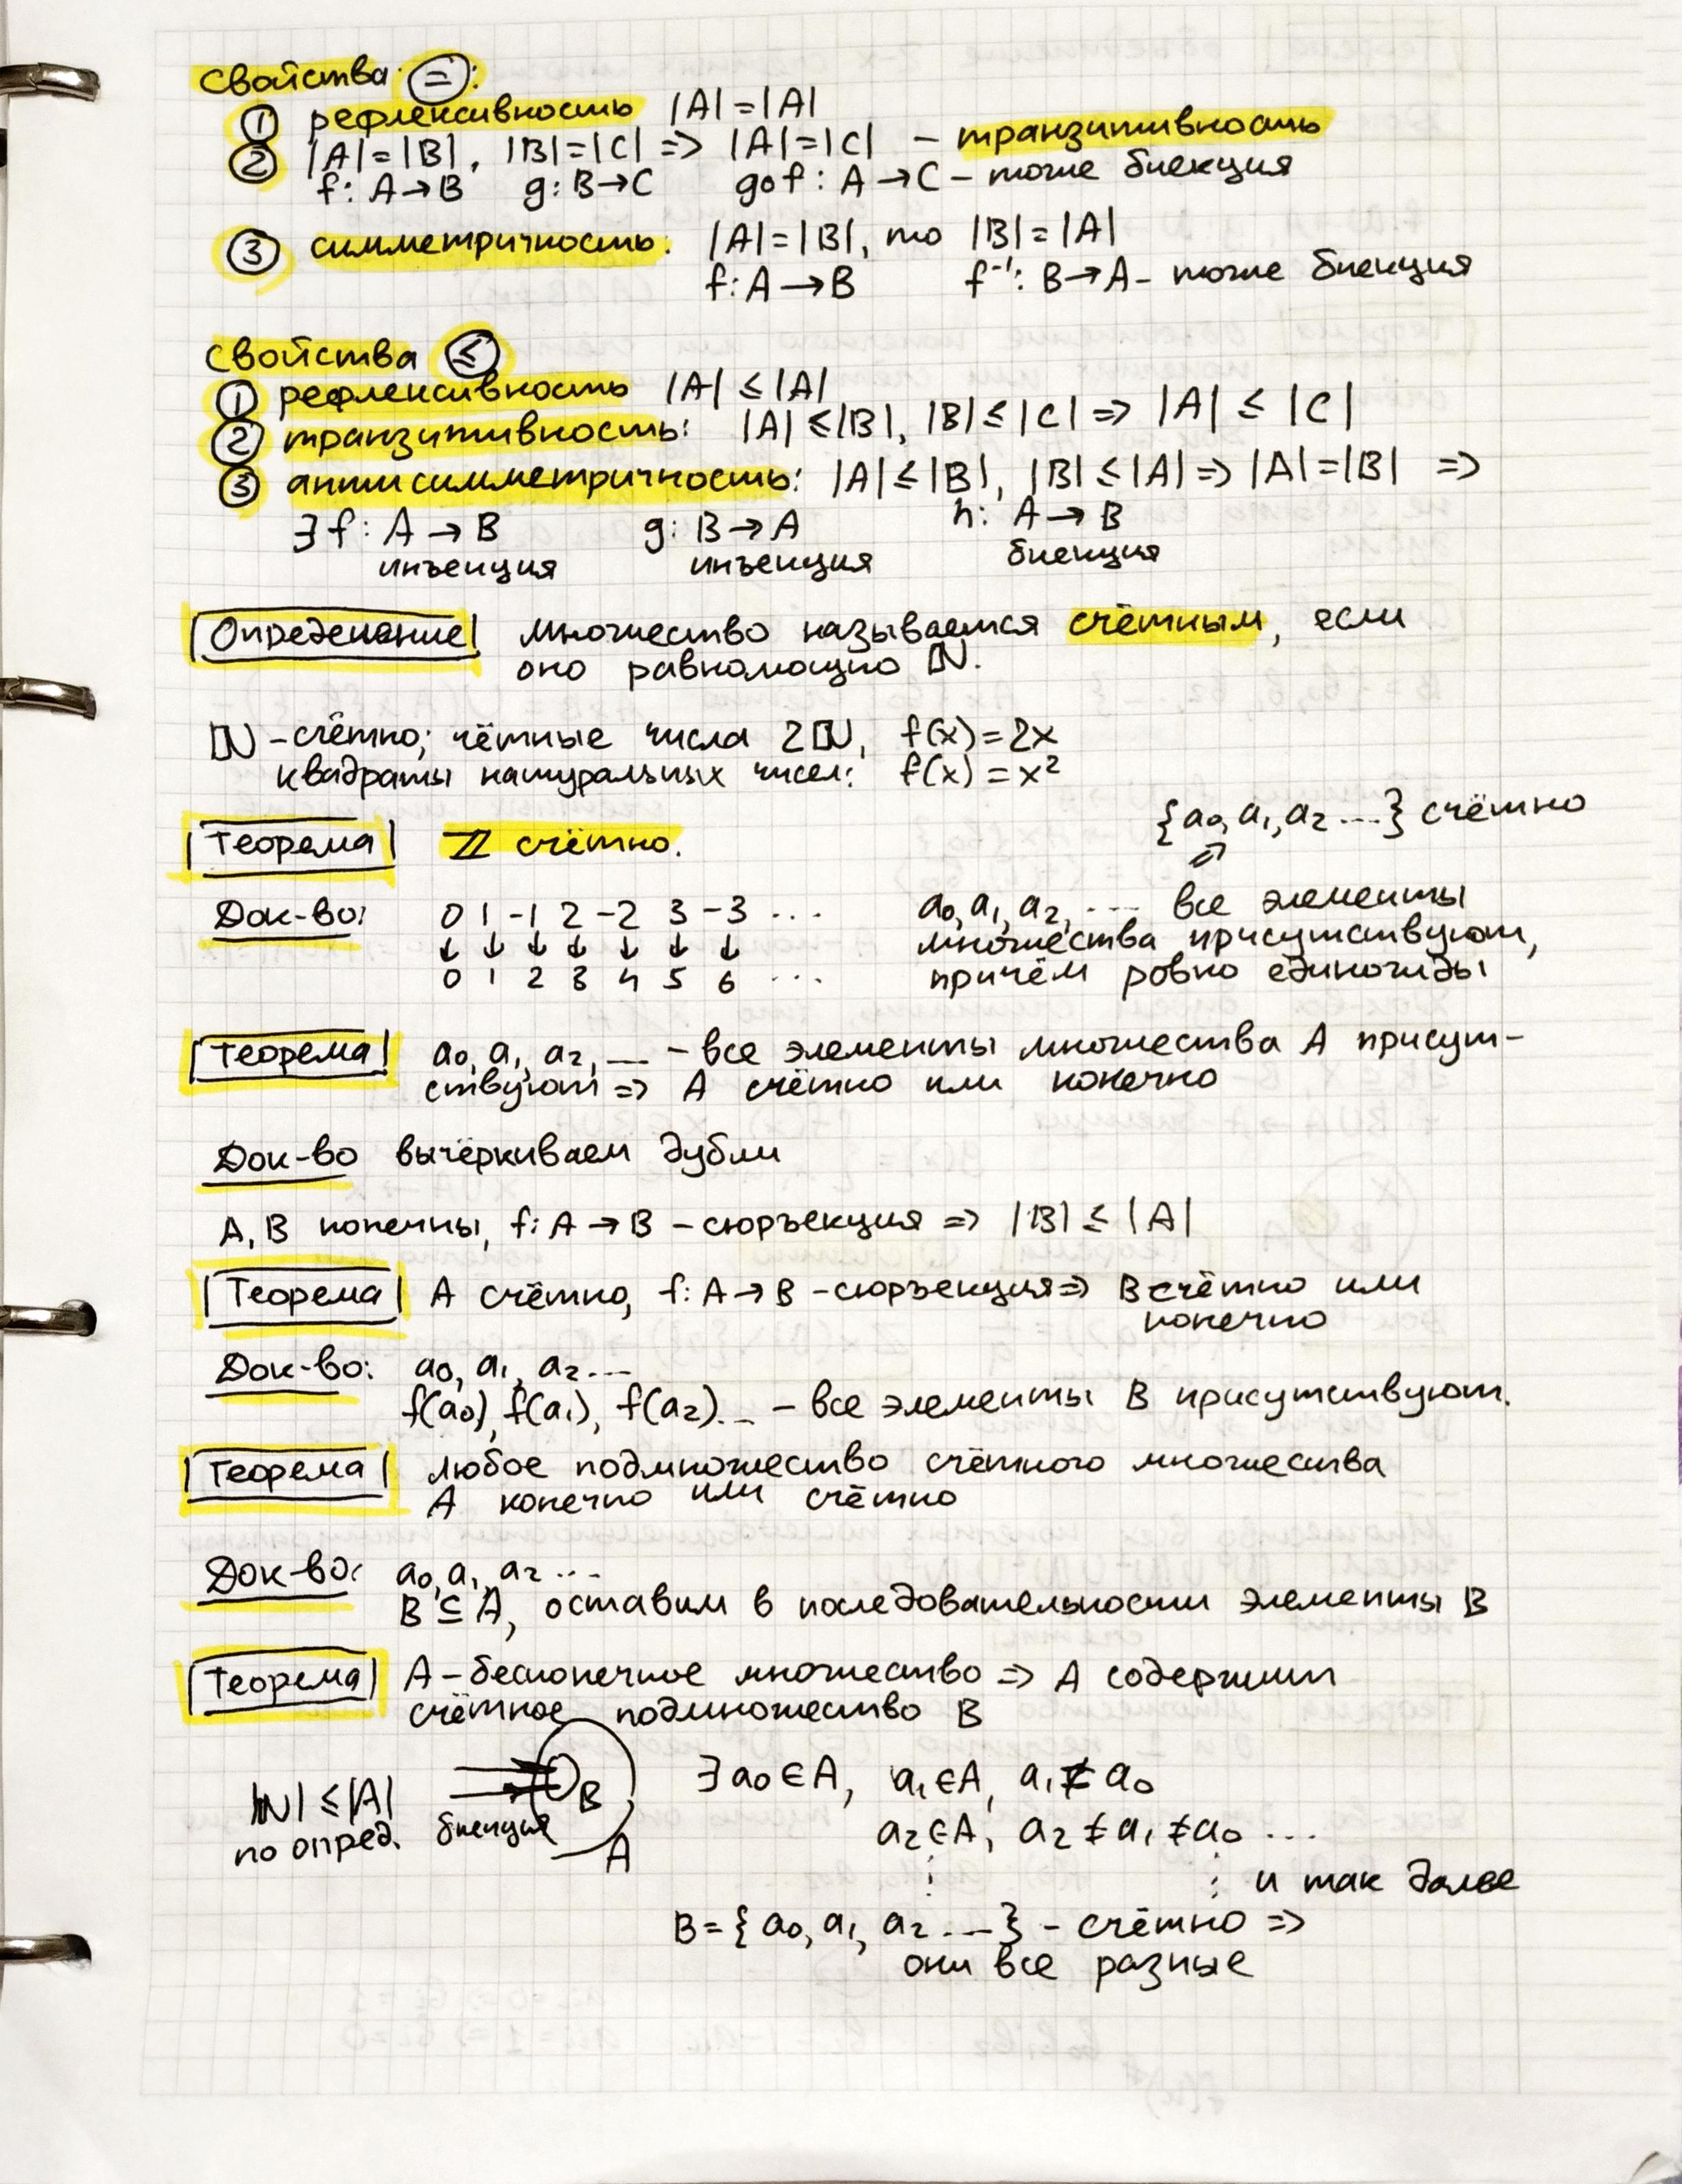 Свойства (=):
① рефлексивность |A|=|A|
② |A|=|B|, |B|=|C| => |A|=|C| – транзитивность
f: A→B g: B→C g∘f: A→C – тоже биекция
③ симметричность: |A|=|B|, то |B|=|A|
f: A→B f⁻¹: B→A – тоже биекция
Свойства (≤)
① рефлексивность |A| ≤ |A|
② транзитивность: |A| ≤ |B|, |B| ≤ |C| => |A| ≤ |C|
③ антисимметричность: |A| ≤ |B|, |B| ≤ |A| => |A|=|B| =>
∃ f: A→B g: B→A h: A→B
инъекция инъекция биекция
Определение множество называется счётным, если
оно равномощно ℕ.
ℕ – счётно; чётные числа 2ℕ, f(x)=2x
квадраты натуральных чисел: f(x)=x²
{a₀, a₁, a₂ ...} счётно
Теорема ℤ счётно.
⇒
Док-во: 0 1 -1 2 -2 3 -3 ... a₀, a₁, a₂, ... все элементы
↓ ↓ ↓ ↓ ↓ ↓ ↓ множества присутствуют,
0 1 2 3 4 5 6 ... причём ровно единожды
Теорема a₀, a₁, a₂, ... – все элементы множества A присут-
ствуют => A счётно или конечно
Док-во вычёркиваем дубли
A, B конечны, f: A→B – сюръекция => |B| ≤ |A|
Теорема A счётно, f: A→B – сюръекция => B счётно или
конечно
Док-во: a₀, a₁, a₂ ...
f(a₀), f(a₁), f(a₂) ... – все элементы B присутствуют.
Теорема любое подмножество счётного множества
A конечно или счётно
Док-во: a₀, a₁, a₂ ...
B ⊆ A, оставим в последовательности элементы B
Теорема A – бесконечное множество => A содержит
счётное подмножество B
|ℕ| ≤ |A| B ∃ a₀∈A, a₁∈A, a₁≠a₀
по опред. биекция A a₂∈A, a₂≠a₁≠a₀ ...
⋮ ⋮ и так далее
B={a₀, a₁, a₂ ...} – счётно =>
они все разные